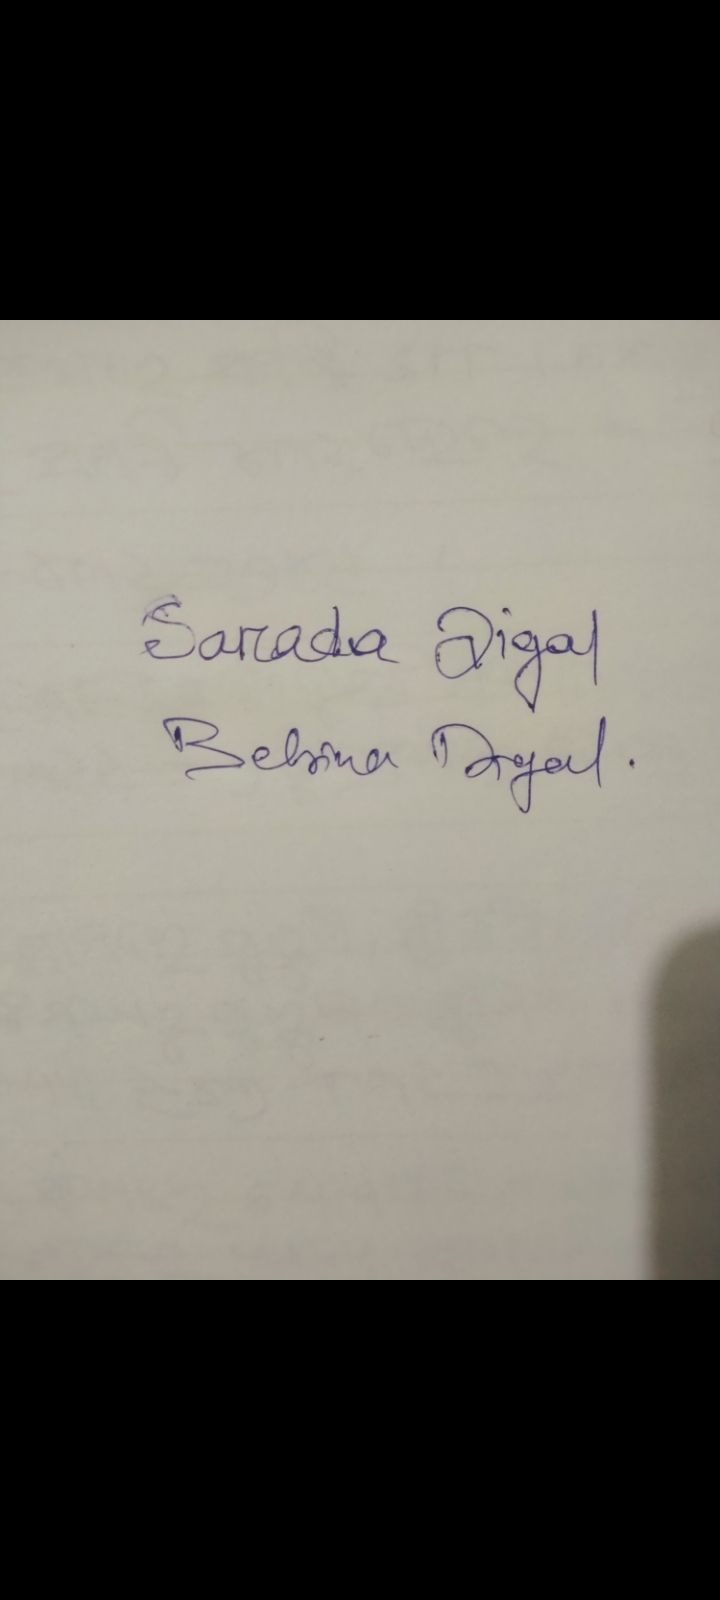 Sarada Digal
Bebina Digal.